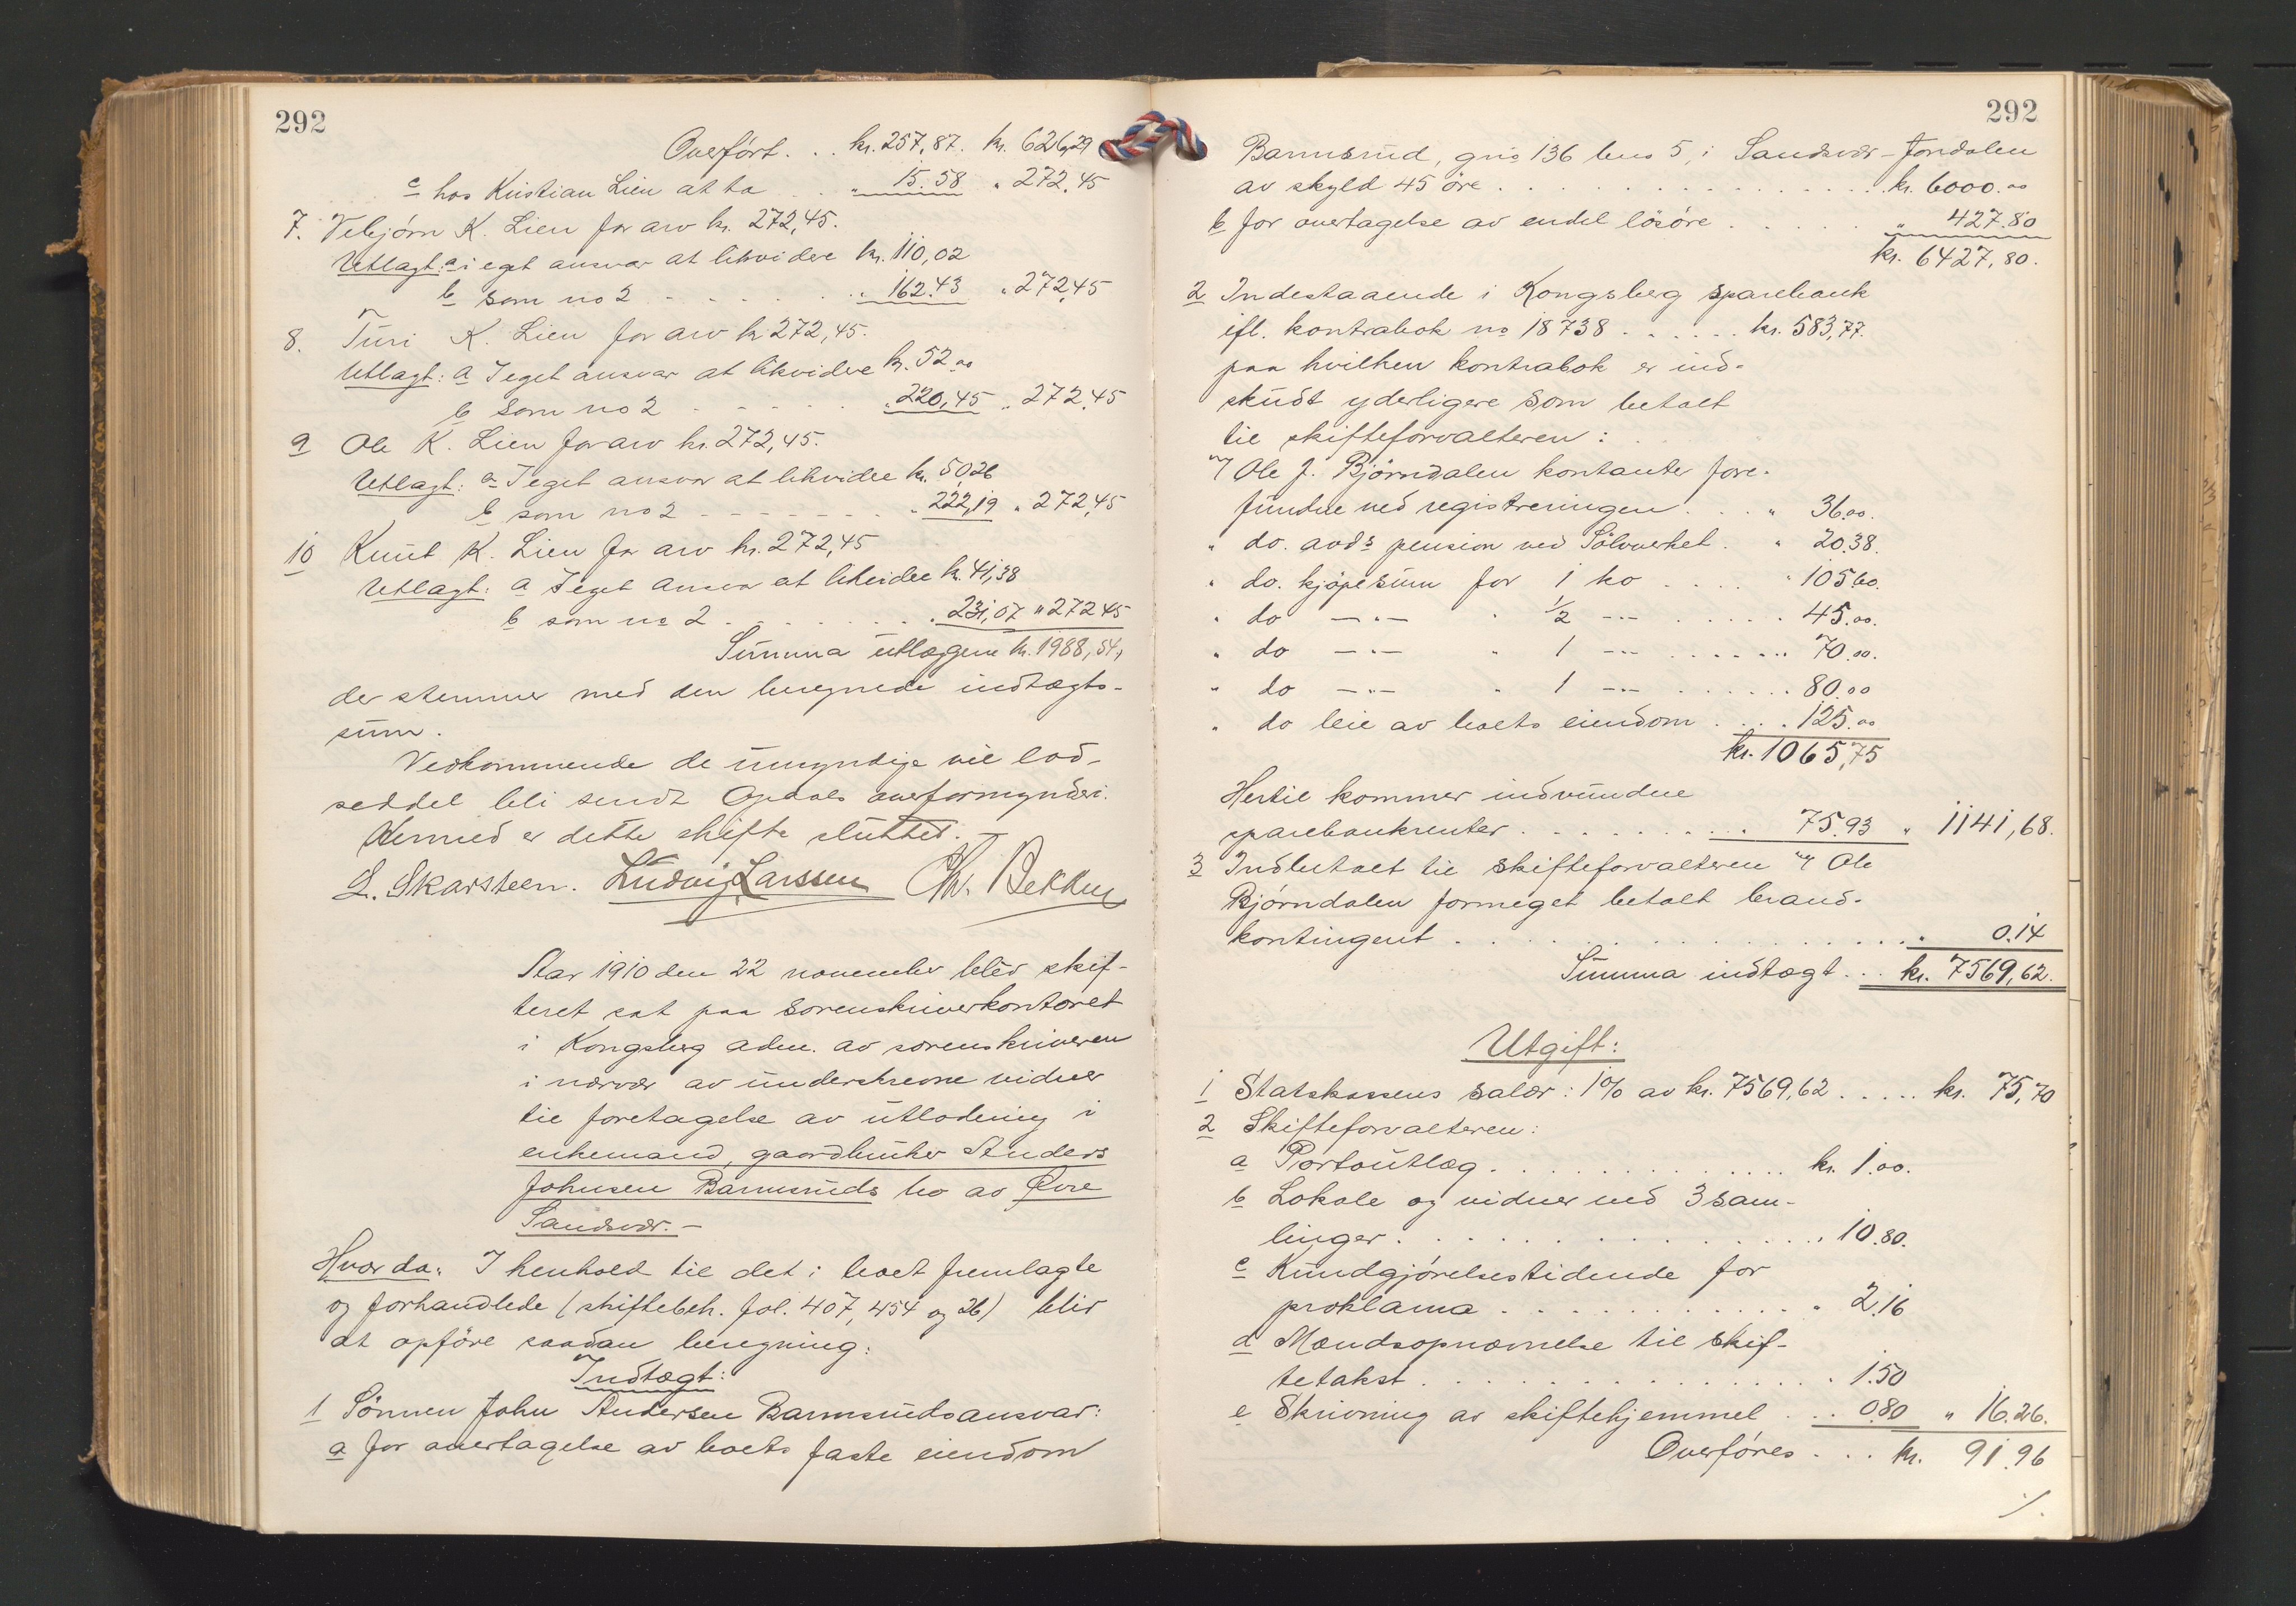 292
Overført. . . kr. 257,87. kr. 626,29
c hos Kristian Lien at ta . . " 15.58 " 272,45
7. Vebjørn K. Lien for arv kr. 272,45.
Utlagt: a i eget ansvar at likvidere kr. 110,02
b som no 2 . . . . . . " 162.43 " 272,45
8. Turi K. Lien for arv kr 272,45.
Utlagt: a I eget ansvar at likvidere kr. 52.00
b som no 2 . . . . . . " 220,45 " 272,45
9 Ole K. Lien for arv kr. 272,45.
Utlagt: a I eget ansvar at likvidere kr. 50,26
b som no 2 . . . . . . " 222,19 " 272,45
10 Knut K. Lien for arv kr. 272,45
Utlagt: a I eget ansvar at likvidere kr. 41,38
b som no 2 . . . . . . " 231,07 " 272 45
Summa utlæggene kr. 1988,54,
der stemmer med den beregnede indtægts-
sum.
Vedkommende de umyndige vil lod-
seddel bli sendt Opdals overformynderi.
Hermed er dette skifte sluttet.
L. Skarsteen. Ludvig Larssen Chr. Bekken
Aar 1910 den 22 november blev skif-
teret sat paa sorenskriverkontoret
i Kongsberg adm. av sorenskriveren
i nærvær av underskrevne vidner
til foretagelse av utlodning i
enkemand, gaardbruker Anders
Johnsen Barmsruds bo av Øvre
Sandsvær. -
Hvorda: I henhold til det i boet fremlagte
og forhandlede (skiftebeh. fol. 407, 454 og 26) blir
at opføre saadan beregning:
Indtægt:
1 Sönnen John Andersen Barmsruds ansvar:
a for overtagelse av boets faste eiendom
292
Barmsrud, gno 136 bno 5, i Sandsvær-Jondalen
av skyld 45 öre . . . . . . . . . . kr. 6000.00
b for overtagelse av endel lösöre . . . . . " 427.80
kr. 6427,80.
2 Indestaaende i Kongsberg sparebank
ifl. kontrabok no 18738 . . . . . . kr. 583,77.
paa hvilken kontrabok er ind-
skudt yderligere som betalt
til skifteforvalteren:
av Ole J. Björndalen kontanter fore-
fundne ved registreringen . . . " 36.00.
" do. avds pension ved Sölvverket . " 20.38.
" do. kjøpesum for 1 ko . . . . " 105.60.
" do -"- " 1/2 -"- . . . . . 45.00.
" do -"- " 1 -"- . . . . . 70.00.
" do -"- " 1 -"- . . . . . 80.00
" do leie av boets eiendom . . . . 125.00
kr. 1065,75
Hertil kommer indvundne
sparebankrenter . . . . . . . . . 75.93 " 1141,68.
3 Indbetalt til skifteforvalteren av Ole
Bjørndalen formeget betalt brand-
kontingent . . . . . . . . . . . . 0.14
Summa indtægt . . . kr. 7569,62.
Utgift:
1 Statskassens salær: 1% av kr. 7569,62 . . . . . kr. 75,70
2 Skifteforvalteren:
a Portoutlæg . . . . . . . . . . kr. 1.00.
b Lokale og vidner ved 3 sam-
linger . . . . . . . . . . . . " 10.80.
c Kundgjörelsestidende for
proklama . . . . . . . . . . " 2.16
d Mændsopnævnelse til skif-
tetakst . . . . . . . . . . . . 1.50
e Skrivning av skiftehjemmel . . . 0.80 " 16.26.
Overføres . . . kr. 91.96
./.